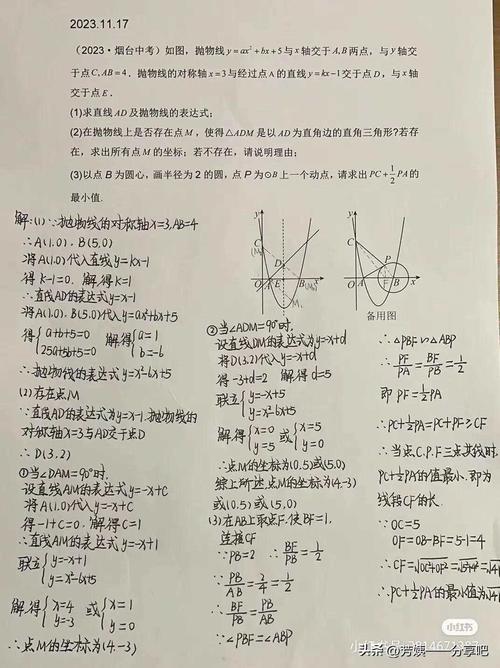 2023.11.17
(2023·烟台中考)如图,抛物线y=ax²+bx+5与x轴交于A,B两点,与y轴交
于点C,AB=4. 抛物线的对称轴x=3与经过点A的直线y=kx-1交于点D,与x轴
交于点E.
(1)求直线AD及抛物线的表达式;
(2)在抛物线上是否存在点M,使得△ADM是以AD为直角边的直角三角形?若存
在,求出所有点M的坐标;若不存在,请说明理由;
(3)以点B为圆心,画半径为2的圆,点P为⊙B上一个动点,请求出PC+1/2PA的
最小值.
解:(1)∵抛物线的对称轴x=3,AB=4
∴A(1,0),B(5,0)
将A(1,0)代入直线y=kx-1
得k-1=0. 解得k=1
∴直线AD的表达式y=x-1
将A(1,0),B(5,0)代入y=ax²+bx+5
得{a+b+5=0 解得{a=1
25a+5b+5=0 b=-6
∴抛物线的表达式y=x²-6x+5
(2)存在点M
∵直线AD的表达式为y=x-1,抛物线的
对称轴x=3与AD交于点D
∴D(3,2)
①当∠DAM=90°时,
设直线AM的表达式y=-x+C
将A(1,0)代入y=-x+C
得-1+C=0,解得C=1
∴直线AM的表达式y=-x+1
联立{y=-x+1
y=x²-6x+5
解得{x=4 或{x=1
y=-3 y=0
∴点M的坐标为(4,-3)
y
C
D
O
A
E
B
x
M
y
C
P
O
A
F
B
x
备用图
②当∠ADM=90°时,
设直线DM的表达式为y=-x+d
将D(3,2)代入y=-x+d
得-3+d=2 解得d=5
联立{y=-x+5
y=x²-6x+5
解得{x=0 或{x=5
y=5 y=0
∴点M的坐标为(0,5)或(5,0)
综上所述,点M的坐标为(4,-3)
或(0,5)或(5,0)
(3)在AB上取点F,使BF=1,
连接CF
∵PB=2 ∴BF/PB=1/2
∵PB/AB=2/4=1/2
∴BF/PB=PB/AB
∵∠PBF=∠ABP
∴△PBF∽△ABP
∴PF/PA=BF/PB=1/2
即PF=1/2PA
∴PC+1/2PA=PC+PF≥CF
∴当点C,P,F三点共线时,
PC+1/2PA的值最小,即为
线段CF的长.
∵OC=5
OF=OB-BF=5-1=4
∴CF=√OC²+OF²=√5²+4²=√41
∴PC+1/2PA的最小值为√41
小红书
头条 @芳姨——分享吧